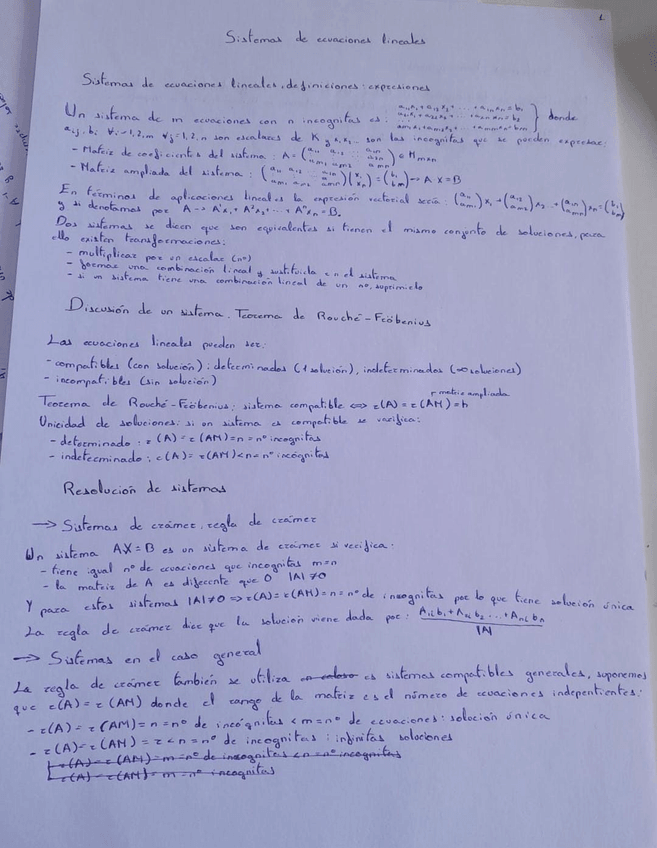 1
Sistemas de ecuaciones lineales
Sistemas de ecuaciones lineales: definiciones: expresiones
Un sistema de m ecuaciones con n incognitas es: a₁₁x₁+a₁₂x₂+...+a₁ₙxₙ=b₁ donde
son escalares de K y x₁, x₂... son las incognitas que se pueden expresar:
- Matriz de coeficientes del sistema: A=
- Matriz ampliada del sistema: → AX=B
En términos de aplicaciones lineales la expresión vectorial sería:
y si denotamos por A → A¹x₁ + A²x₂ + ... + Aⁿxₙ = B.
Dos sistemas se dicen que son equivalentes si tienen el mismo conjunto de soluciones, para
ello existen transformaciones:
- multiplicar por un escalar (nº)
- formar una combinación lineal y sustituirla en el sistema
- si un sistema tiene una combinación lineal de un nº, suprimirlo
Discusión de un sistema. Teorema de Rouché-Fröbenius
Las ecuaciones lineales pueden ser:
- compatibles (con solución): determinados (1 solución), indeterminados (∞ soluciones)
- incompatibles (sin solución)
matriz ampliada
Teorema de Rouché-Fröbenius: sistema compatible ⟺ r(A) = r(AM) = h
Unicidad de soluciones: si un sistema es compatible se verifica:
- determinado: r(A) = r(AM) = n = nº incógnitas
- indeterminado: r(A) = r(AM) < n = nº incógnitas
Resolución de sistemas
→ Sistemas de crámer: regla de crámer
Un sistema AX=B es un sistema de crámer si verifica:
- tiene igual nº de ecuaciones que incognitas m=n
- la matriz de A es diferente que 0 |A|≠0
Y para estos sistemas |A|≠0 ⟹ r(A) = r(AM) = n = nº de incognitas por lo que tiene solución única
La regla de crámer dice que la solución viene dada por: A₁ᵢb₁+A₂ᵢb₂...+Aₙᵢbₙ
|A|
→ Sistemas en el caso general
La regla de crámer también se utiliza es sistemas compatibles generales, suponemos
que r(A) = r(AM) donde el rango de la matriz es el número de ecuaciones indepentientes:
- r(A) = r(AM) = n = nº de incógnitas < m = nº de ecuaciones: solución única
- r(A) = r(AM) = r < n = nº de incognitas: infinitas soluciones
r(A) = r(AM) = m = nº de incognitas < n = nº incognitas
r(A) = r(AM) = m = nº incognitas